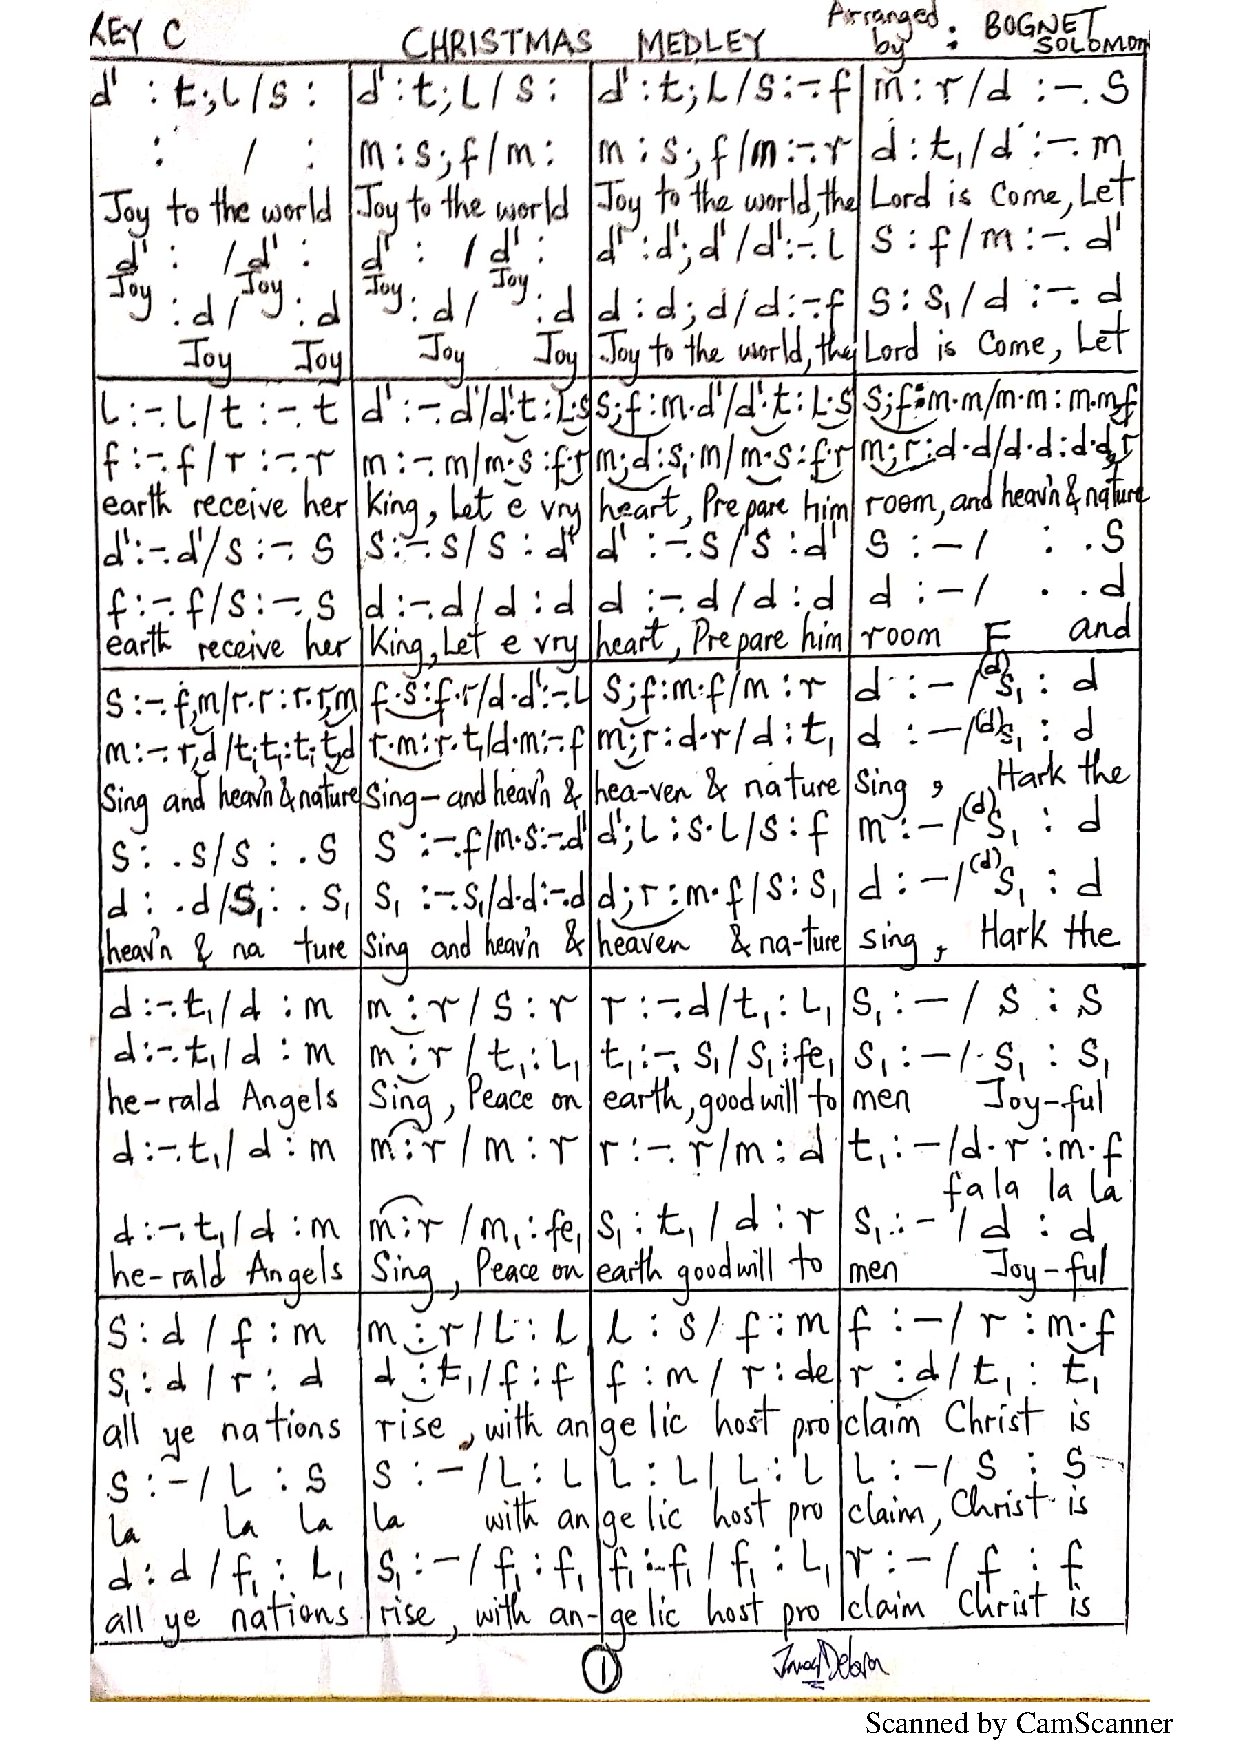 KEY C CHRISTMAS MEDLEY Arranged by : BOGNET SOLOMON
d' : t;L/s : | d' : t;L/s : | d' : t;L/s :-.f | m : r/d :-.s
: / : | m : s;f/m : | m : s;f/m :-.r | d : t₁/d :-.m
Joy to the world | Joy to the world | Joy to the world, the | Lord is Come, Let
d' : /d' : | d' : /d' : | d' : d';d'/d' :-.L | s : f/m :-.d'
Joy Joy | Joy Joy
: d/ : d | : d/ : d | d : d;d/d :-.f | s : s₁/d :-.d
Joy Joy | Joy Joy | Joy to the world, the | Lord is Come, Let
L :-.L/t :-.t | d' :-.d'/d'.t : L.s | s;f : m.d'/d'.t : L.s | s;f : m.m/m.m : m.m,f
f :-.f/r :-.r | m :-.m/m.s : f.r | m;d : s₁.m/m.s : f.r | m;r : d.d/d.d : d.d,r
earth receive her | King, Let e vry | heart, Prepare him | room, and heav'n & nature
d' :-.d'/s :-.s | s :-.s/s : d' | d' :-.s/s : d' | s : -/ : .s
f :-.f/s :-.s | d :-.d/d : d | d :-.d/d : d | d : -/ . .d
earth receive her | King, Let e vry | heart, Prepare him | room F and
s :-.f,m/r.r : r.r,m | f.s : f.r/d.d' :-.L | s;f : m.f/m : r | d : -/(d)s₁ : d
m :-.r,d/t₁.t₁ : t₁.t₁,d | r.m : r.t₁/d.m :-.f | m;r : d.r/d : t₁ | d : -/(d)s₁ : d
Sing and heav'n & nature | Sing - and heav'n & | hea-ven & nature | Sing , Hark the
s : .s/s : .s | s :-.f/m.s :-.d' | d';L : s.L/s : f | m : -/(d)s₁ : d
d : .d/s₁ : .s₁ | s₁ :-.s₁/d.d :-.d | d;r : m.f/s : s₁ | d : -/(d)s₁ : d
heav'n & na ture | Sing and heav'n & | heaven & na-ture | sing, Hark the
d :-.t₁/d : m | m : r / s : r | r :-.d/t₁ : L₁ | s₁ : - / s : s
d :-.t₁/d : m | m : r / t₁ : L₁ | t₁ :-.s₁/s₁ : fe₁ | s₁ : - /. s₁ : s₁
he-rald Angels | Sing, Peace on | earth, goodwill to | men Joy-ful
d :-.t₁/d : m | m : r / m : r | r :-.r/m : d | t₁ : -/d.r : m.f
fa la la la
d :-.t₁/d : m | m : r / m₁ : fe₁ | s₁ : t₁ / d : r | s₁ : - / d : d
he-rald Angels | Sing, Peace on | earth goodwill to | men Joy-ful
s : d / f : m | m : r/L : L | L : s / f : m | f : -/ r : m.f
s₁ : d / r : d | d : t₁/f : f | f : m / r : de | r : d/t₁ : t₁
all ye nations | rise, with an | ge lic host pro | claim Christ is
s : -/ L : s | s : -/L : L | L : L/ L : L | L : -/ s : s
La La La | La with an | ge lic host pro | claim, Christ is
d : d / f₁ : L₁ | s₁ : -/ f₁ : f₁ | f₁ :-f₁ / f₁ : L₁ | r : -/ f : f
all ye nations | rise, with an- | ge lic host pro | claim Christ is
1
Scanned by CamScanner